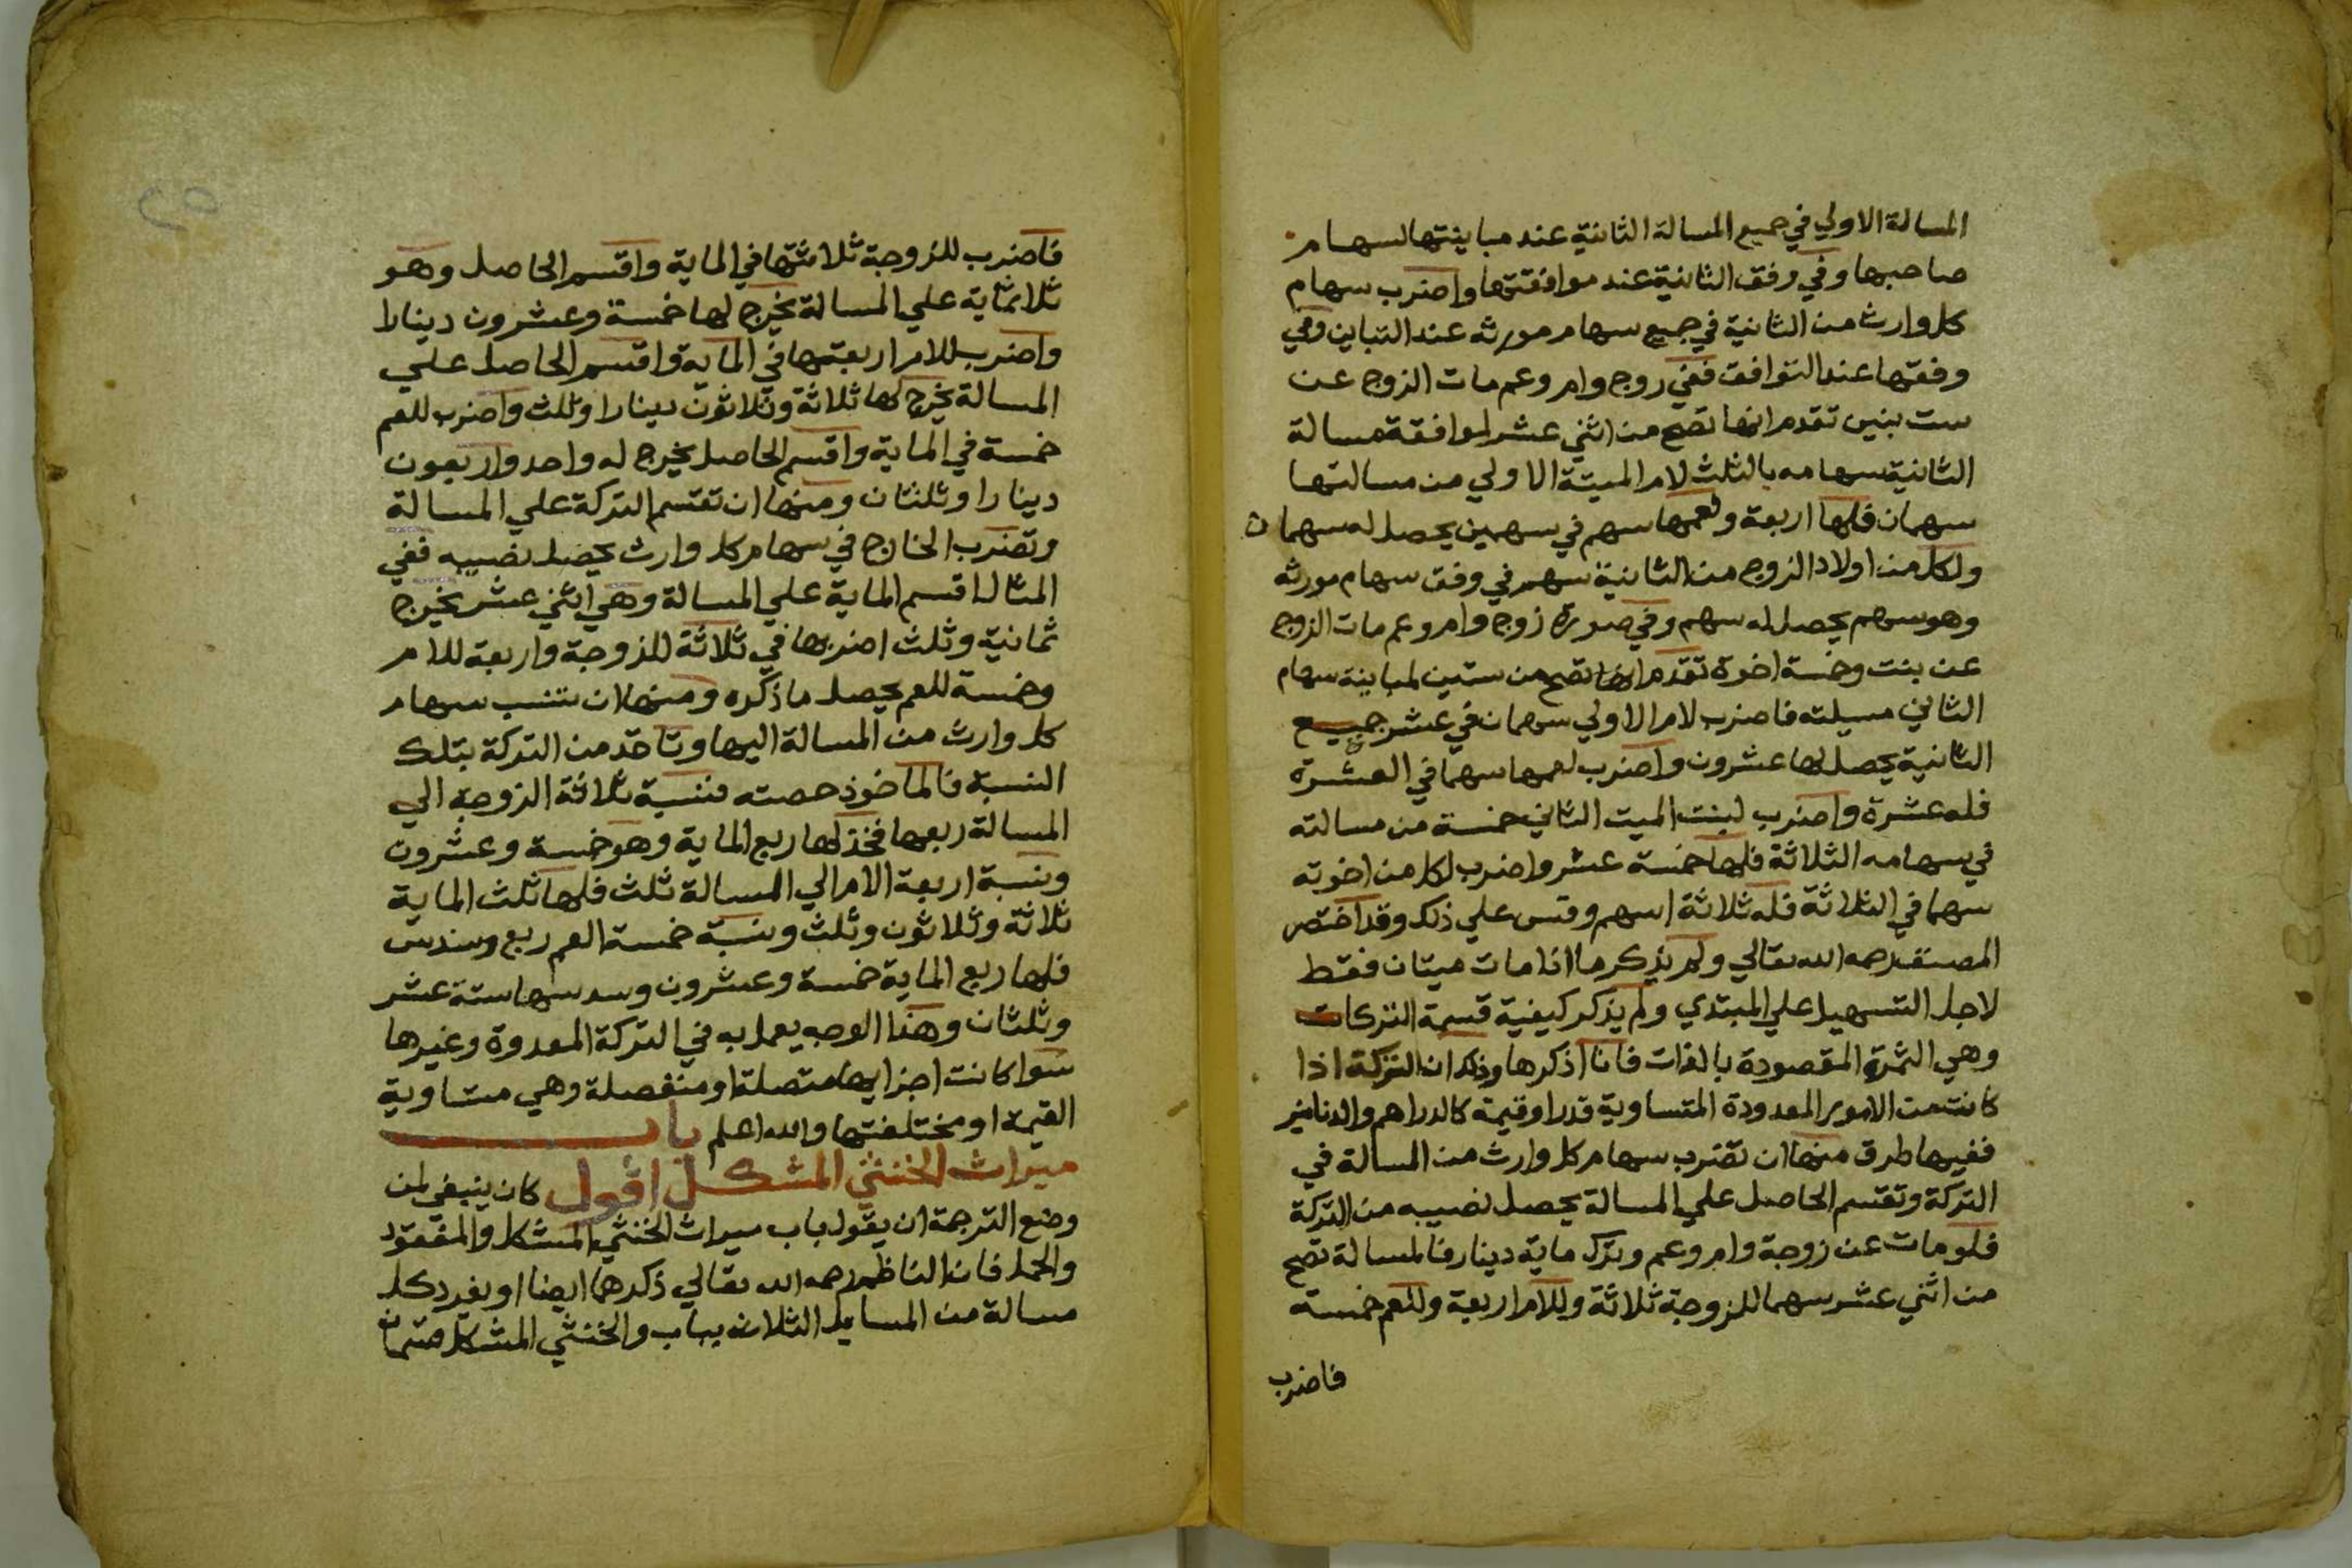 المسالة الاولي في جميع المسالة الثانية عند مباينتها لسهام
صاحبها وفي وفق الثانية عند موافقتها واضرب سهام
كل وارث من الثانية في جميع سهام مورثه عند التباين وفي
وفقها عند التوافق ففي زوج وام وعم مات الزوج عن
ست بنين تقدم انها تصح من اثني عشر لموافقة مسالة
الثانية سهامه بالثلث لام الميتة الاولي من مسالتها
سهمان فلها اربعة ولعمها سهم في سهمين يحصل له سهمان
ولكل من اولاد الزوج من الثانية سهم في وفق سهام مورثه
وهو سهم يحصل له سهم وفي صورة زوج وام وعم مات الزوج
عن بنت وخمسة اخوة تقدم انها تصح من ستين لمباينة سهام
الثاني مسيلته فاضرب لام الاولي سهمان في عشر جميع
الثانية يحصل لها عشرون واضرب لعمها سهما في العشرة
فله عشرة واضرب لبنت الميت الثاني خمسة من مسالته
في سهامه الثلاثة فلها خمسة عشر واضرب لكل من اخوته
سهما في الثلاثة فله ثلاثة اسهم وقس علي ذلك وقد اختصر
المصنف رحمه الله تعالي ولم يذكر ما اذا مات ميتان فقط
لاجل التسهيل علي المبتدي ولم يذكر كيفية قسمة التركات
وهي الثمرة المقصودة بالذات فانا اذكرها وذلك ان التركة اذا
كانت من الامور المعدودة المتساوية قدرا وقيمة كالدراهم والدنانير
ففيها طرق منها ان تضرب سهام كل وارث من المسالة في
التركة وتقسم الحاصل علي المسالة يحصل نصيبه من التركة
فلو مات عن زوجة وام وعم وترك ماية دينار فالمسالة تصح
من اثني عشر سهما للزوجة ثلاثة وللام اربعة وللعم خمسة
فاضرب
فاضرب للزوجة ثلاثتها في الماية واقسم الحاصل وهو
ثلاثماية علي المسالة يخرج لها خمسة وعشرون دينارا
واضرب للام اربعتها في الماية واقسم الحاصل علي
المسالة يخرج لها ثلاثة وثلاثون دينارا وثلث واضرب للعم
خمسة في الماية واقسم الحاصل يخرج له واحد واربعون
دينارا وثلثان ومنها ان تقسم التركة علي المسالة
وتضرب الخارج في سهام كل وارث يحصل نصيبه ففي
المثال اقسم الماية علي المسالة وهي اثني عشر يخرج
ثمانية وثلث اضربها في ثلاثة للزوجة واربعة للام
وخمسة للعم يحصل ما ذكره ومنها ان تنسب سهام
كل وارث من المسالة اليها وتاخذ من التركة بتلك
النسبة فالماخوذ حصته فنسبة ثلاثة الزوجة الي
المسالة ربعها فخذ لها ربع الماية وهو خمسة وعشرون
ونسبة اربعة الام الي المسالة ثلث فلها ثلث الماية
ثلاثة وثلاثون وثلث ونسبة خمسة العم ربع وسدس
فلها ربع الماية خمسة وعشرون وسدسها ستة عشر
وثلثان وهذا الوجه يعمل به في التركة المعدودة وغيرها
سوا كانت اجزايها متصلة او منفصلة وهي متساوية
القيمة او مختلفتها والله اعلم باب
ميراث الخنثي المشكل اقول كان ينبغي لمن
وضع الترجمة ان يقول باب ميراث الخنثي المشكل والمفقود
والحمل فان الناظم رحمه الله تعالي ذكرهما ايضا او يفرد كل
مسالة من المسايل الثلاث بباب والخنثي المشكل